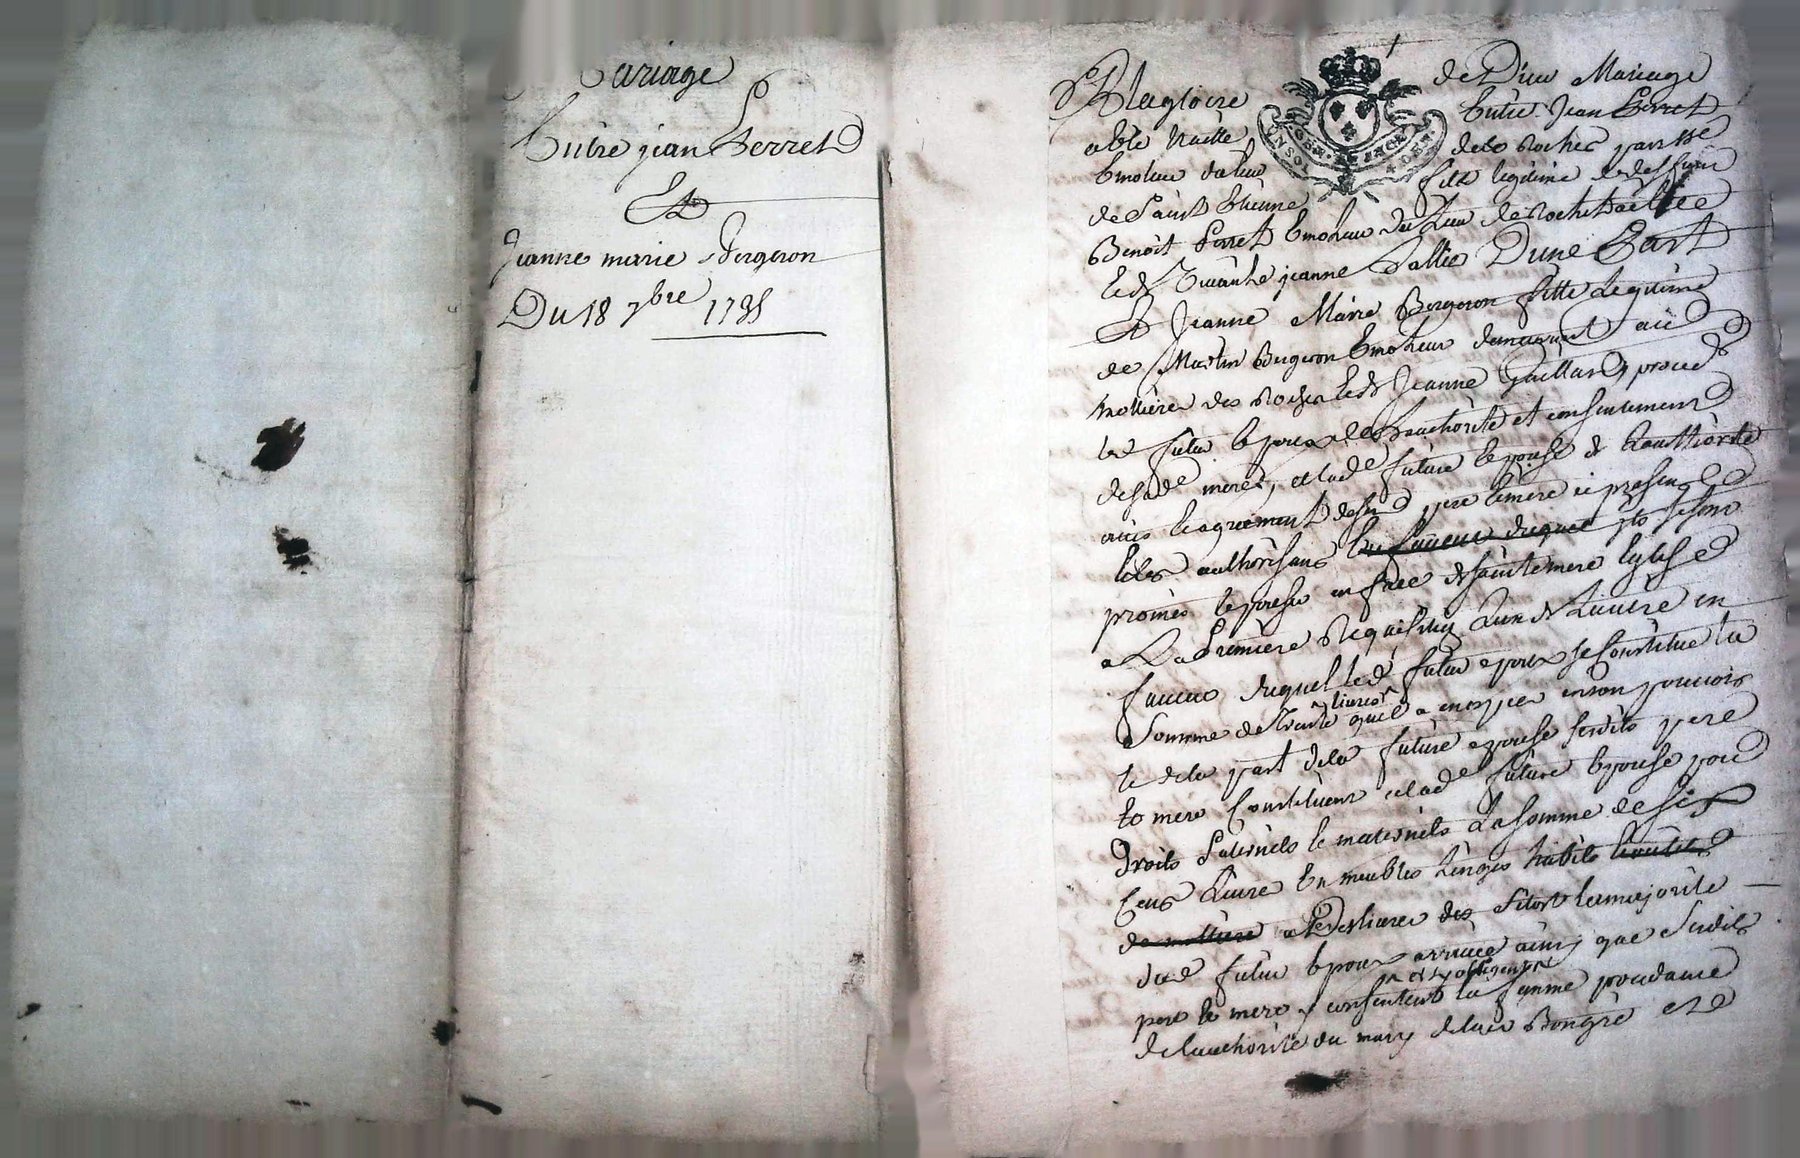 Mariage
Entre jean Perret
Et
Jeanne marie Bergeron
Du 18 7bre 1735
A La gloire de Dieu Mariage
a été traitté Entre Jean Perret
Emoleur du lieu des Roches parroisse
de Saint Etienne fils legitime de deffunt
Benoit Perret Emoleur du Lieu de Rochetaillée
et de vivante jeanne Dune Part
Et Jeanne Marie Bergeron fille Legitime
de Martin Bergeron Emoleur demeurant aux
mollieres des Roches et de Jeanne Gaillard, procedt
led futur Epoux de Lauthorité et consentement
de sade mere, et lade future Epouse de Lauthorité
avis et agrement desd pere et mere icy presents
et les authorisans en faveur duquel se sont
promis Epouser en face de sainte mere Eglise
a La Premiere Requisition Lun de Lautre en
faveur duquel led futur epoux se Constitue la
Somme de Trente livres quil a en son pouvoir
et de la part dela future epouse sesdits pere
et mere Constituent a lade future Epouse pour
Droits Paternels et maternels La somme de six
Cens Livres En meubles Linges habits
de molliere a Deslivrer des sitost la majorité
dud futur Epoux arrivée ainsy que sesdits
pere et mere y consentent et sy obligent la femme procedante
de lauthorité du mary de leur Bon gré et